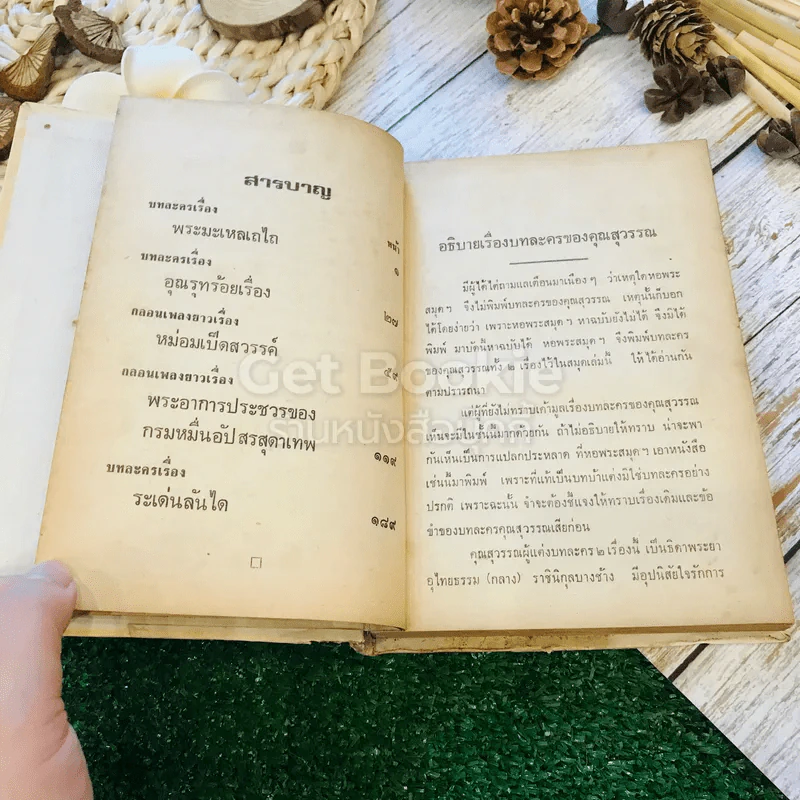 สารบาญ
หน้า
บทละครเรื่อง
พระมะเหลเถไถ ๑
บทละครเรื่อง
อุณรุทร้อยเรื่อง ๒๗
กลอนเพลงยาวเรื่อง
หม่อมเป็ดสวรรค์ ๕๙
กลอนเพลงยาวเรื่อง
พระอาการประชวรของ
กรมหมื่นอัปสรสุดาเทพ ๑๑๙
บทละครเรื่อง
ระเด่นลันได ๑๘๙
อธิบายเรื่องบทละครของคุณสุวรรณ
มีผู้ได้ไต่ถามแลเตือนมาเนือง ๆ ว่าเหตุใดหอพระ
สมุดฯ จึงไม่พิมพ์บทละครของคุณสุวรรณ เหตุนั้นก็บอก
ได้โดยง่ายว่า เพราะหอพระสมุดฯ หาฉบับยังไม่ได้ จึงมิได้
พิมพ์ มาบัดนี้หาฉบับได้ หอพระสมุดฯ จึงพิมพ์บทละคร
ของคุณสุวรรณทั้ง ๒ เรื่องไว้ในสมุดเล่มนี้ ให้ได้อ่านกัน
ตามปรารถนา
แต่ผู้ที่ยังไม่ทราบเค้ามูลเรื่องบทละครของคุณสุวรรณ
เห็นจะมีในชั้นนี้มากด้วยกัน ถ้าไม่อธิบายให้ทราบ น่าจะพา
กันเห็นเป็นการแปลกประหลาด ที่หอพระสมุดฯ เอาหนังสือ
เช่นนี้มาพิมพ์ เพราะที่แท้เป็นบทบ้าแต่งมิใช่บทละครอย่าง
ปรกติ เพราะฉะนั้น จำจะต้องชี้แจงให้ทราบเรื่องเดิมและข้อ
ขำของบทละครคุณสุวรรณเสียก่อน
คุณสุวรรณผู้แต่งบทละคร ๒ เรื่องนี้ เป็นธิดาพระยา
อุไทยธรรม (กลาง) ราชินิกุลบางช้าง มีอุปนิสัยใจรักการ
Get Bookie
ร้านหนังสือเก่า